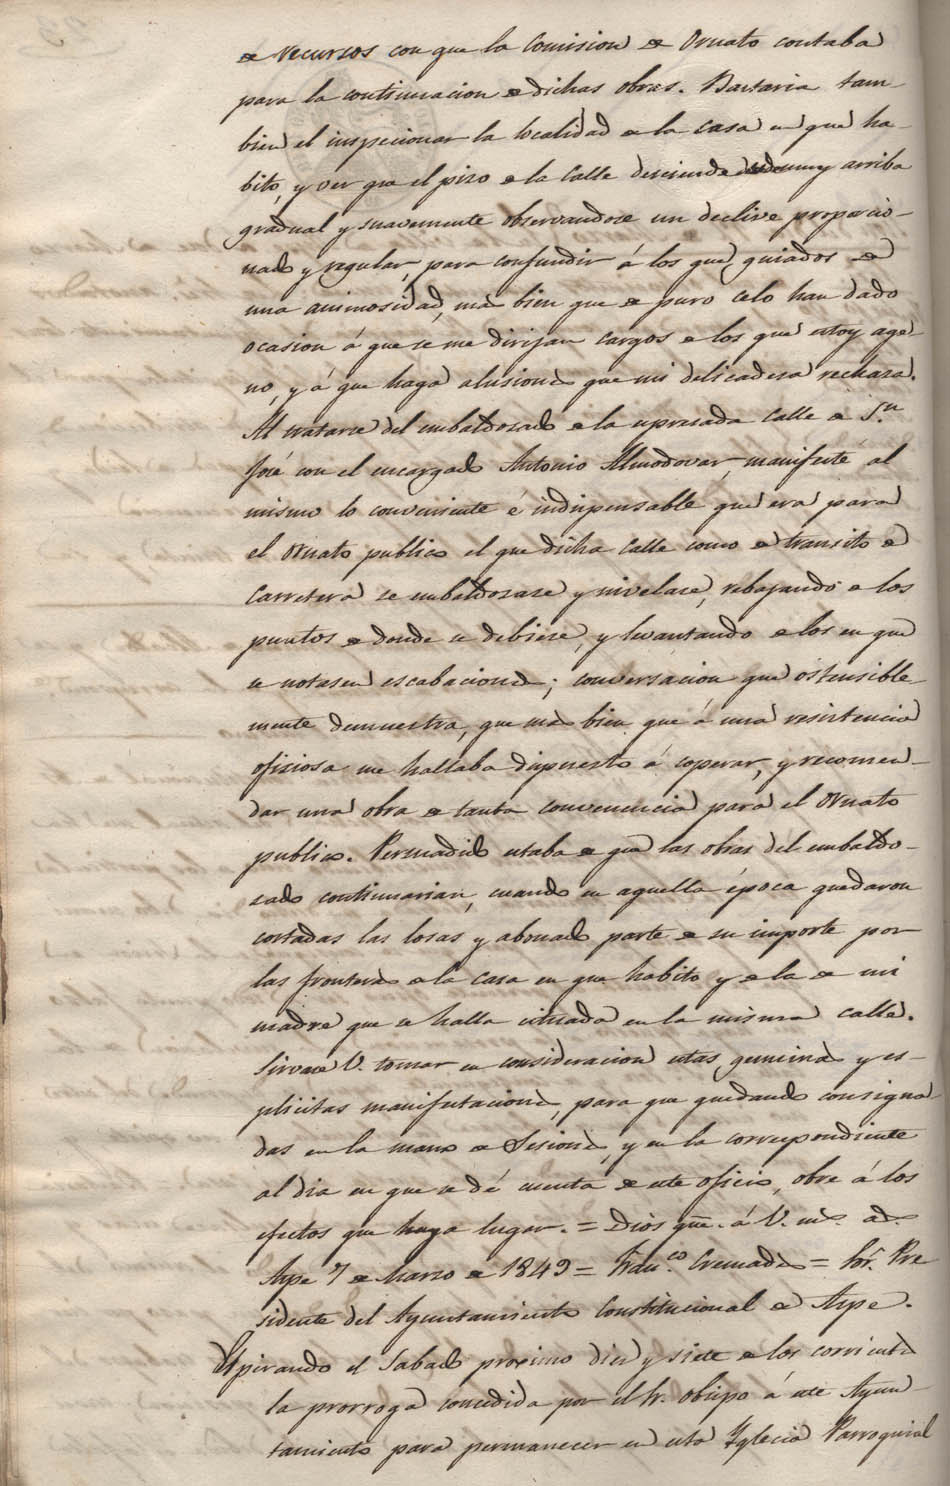 de recursos con que la Comision de Ornato contaba
para la continuacion de dichas obras. Bastaria tam-
bien el inspecionar la localidad de la casa en que ha-
bito, y ver que el piso de la Calle desciende desde muy arriba
gradual y suavemente observandose un declive proporcio-
nado y regular, para confundir á los que guiados de
una animosidad, mas bien que de puro celo han dado
ocasion á que se me dirijan cargos de los que estoy age-
no, y á que haga alusiones que mi delicadesa rechasa.
Al tratarse del embaldosado de la espresada Calle de Sn.
José con el encargado Antonio Almodovar, manifesté al
mismo lo conveniente é indispensable que era para
el ornato publico el que dicha calle como de transito de
Carretera se embaldosase y nivelase, rebajando de los
puntos de donde se debiese, y levantando de los en que
se notasen escabaciones; conversacion que ostensible-
mente demuestra, que mas bien que á una resistencia
ofisiosa me hallaba dispuesto á coperar, y recomen-
dar una obra de tanta convenencia para el Ornato
publico. Persuadido estaba de que las obras del embaldo-
sado continuarian, cuando en aquella época quedaron
cortadas las losas y abonado parte de su importe por
las fronteras de la casa en que habito y de la de mi
madre que se halla situada en la misma calle.
Sirvase V. tomar en consideracion estas genuinas y es-
plicitas manifestaciones, para que quedando consigna-
das en la mano de Sesiones, y en la correspondiente
al dia en que se dé cuenta de este oficio, obre á los
efectos que haya lugar. = Dios gue. á V. ms. as.
Aspe 7 de Marzo de 1849 = Franco. Cremades = Sor. Pre
sidente del Ayuntamiento Constitucional de Aspe.
Espirando el Sabado proximo diez y siete de los corrientes
la prorroga concedida por el Sr. obispo á este Ayun-
tamiento para permanecer en esta Yglecia Parroquial